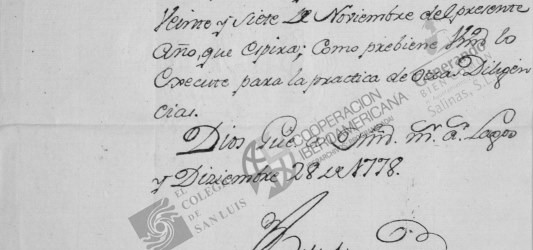 Veinte y Siete de Noviembre del presente
Año, que espira; Como prebiene Vmd lo
execute para la practica de otras Diligen
cias.
Dios Gue a Vmd. m.s a.s Lagos
y Diziembre 28 de 1778.
COOPERACION
IBEROAMERICANA
EL
COLEGIO
DE
SAN LUIS
Salinas, S.L.